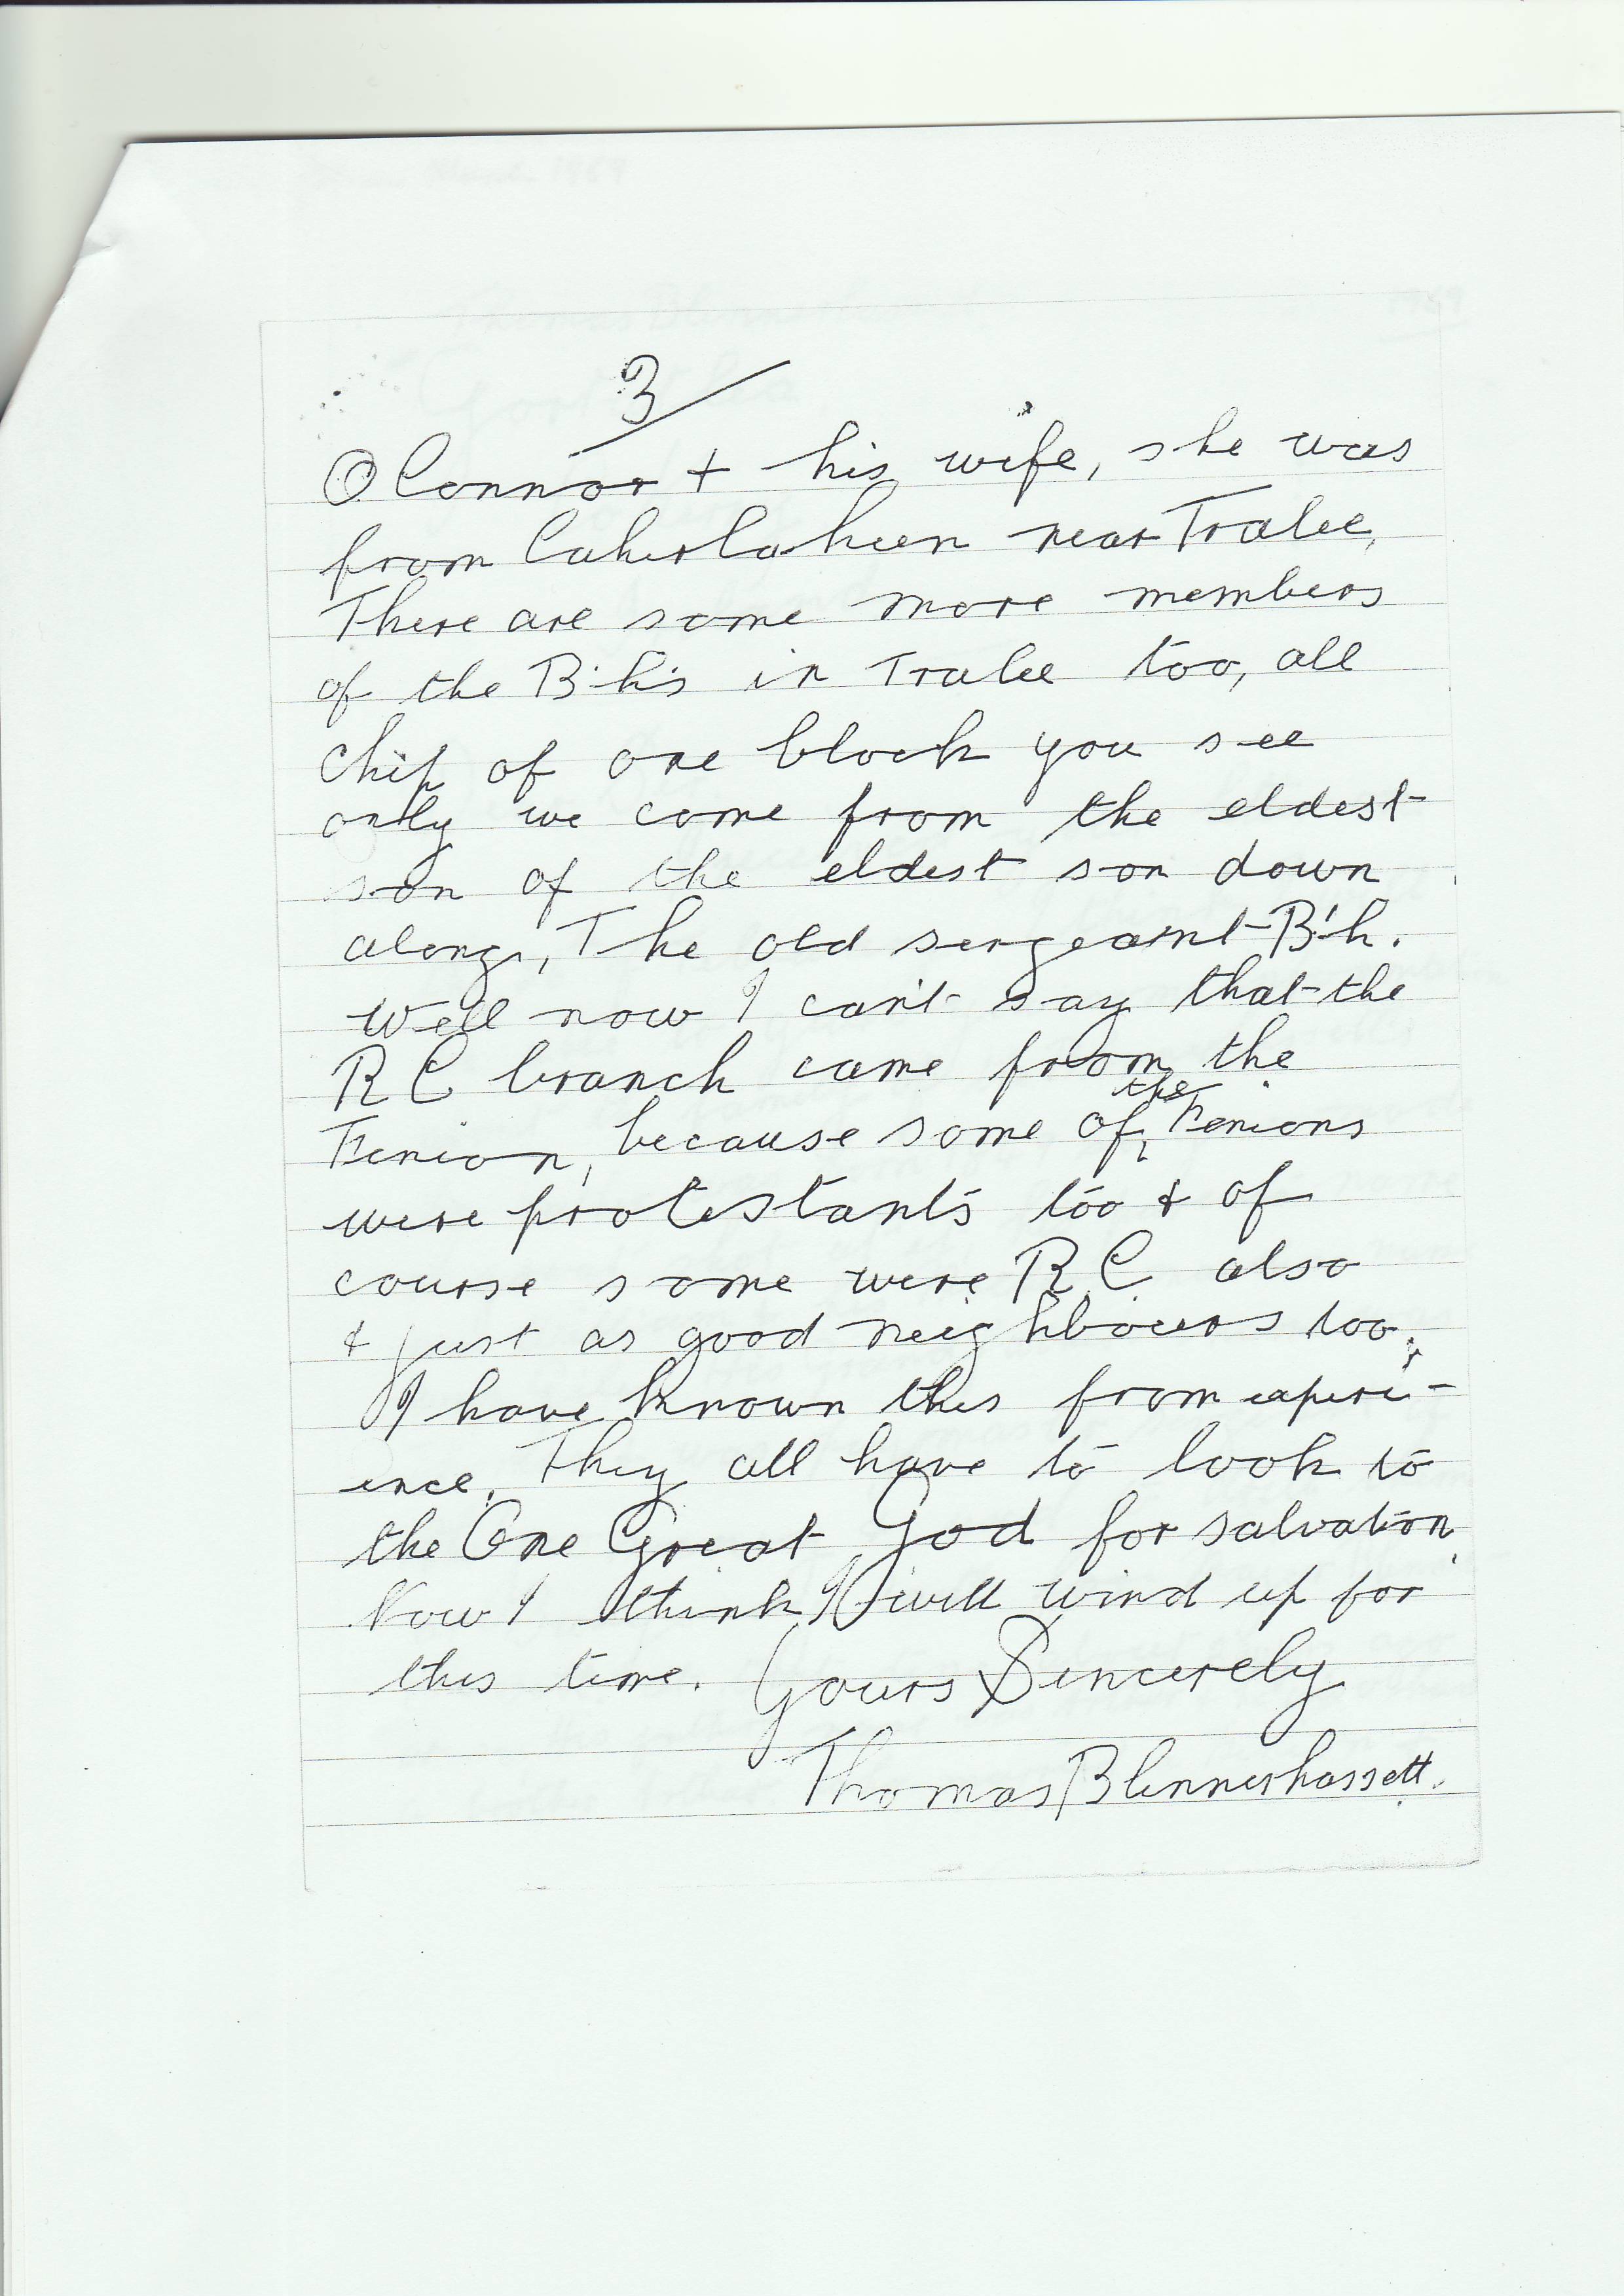 3
O Connor + his wife, she was
from Caherlaheen near Tralee,
There are some more members
of the B'h's in Tralee too, all
chip of one block you see
only we come from the eldest
son of the eldest son down
along, The old sergeant B'h.
Well now I can't say that the
R C branch came from the
Fenion, because some of the Fenions
were protestants too & of
course some were R.C. also
& just as good neighbours too.
I have known this from experi-
ence. They all have to look to
the One Great God for salvation.
Now I think I will wind up for
this time. Yours Sincerely
Thomas Blennerhassett.